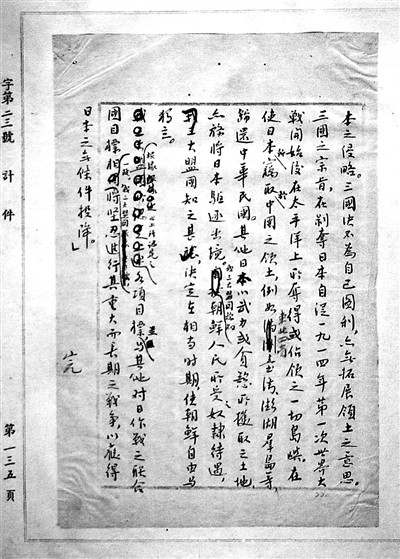 本之侵略。三國決不為自己圖利，亦無拓展領土之意思。
三國之宗旨，在剝奪日本自從一九一四年第一次世界大
戰開始後在太平洋上所奪得或佔領之一切島嶼。在
使日本所竊取於中國之領土，例如東北四省臺湾、澎湖群島等，
歸還中華民國。其他日本以武力或貪慾所攫取之土地，
亦務將日本驅逐出境。我三大盟國稔知朝鮮人民所受之奴隸待遇，
三大盟國知之甚 決定在相當時期，使朝鮮自由與
獨立。
根據以上所認定之各項目標並與其他對日作戰之聯合
國目標相一致，我三大盟國將堅忍進行其重大而長期之戰爭，以獲得
日本之無條件投降。」
字第二三號 計 件
第一三五頁